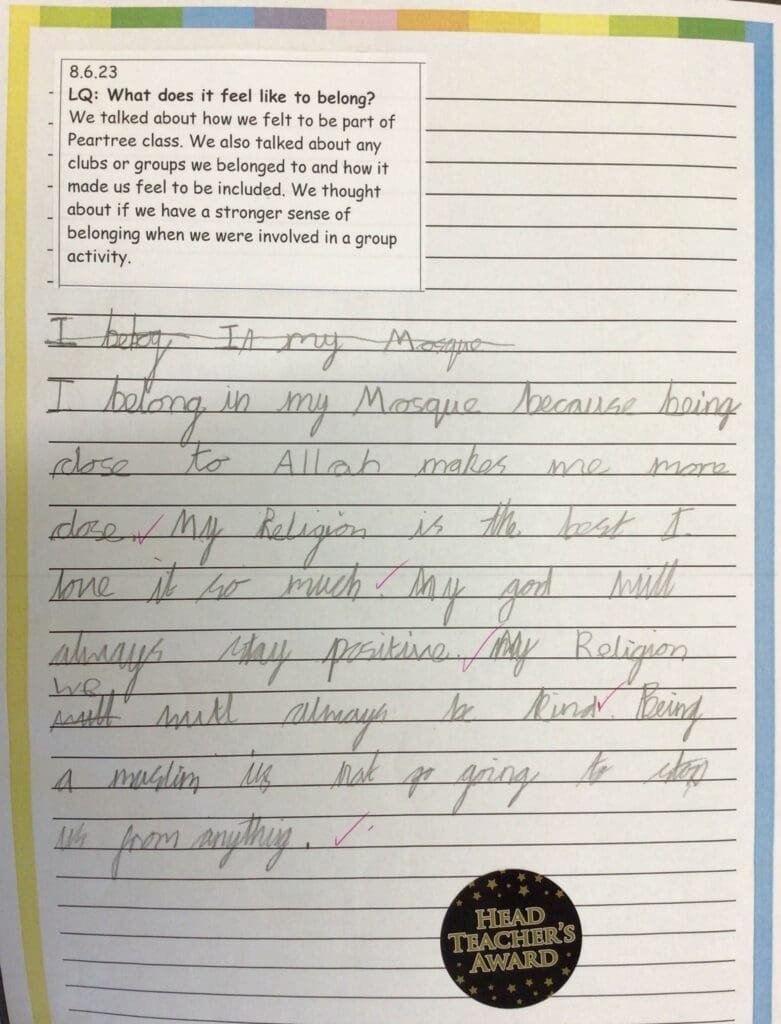 8.6.23
LQ: What does it feel like to belong?
We talked about how we felt to be part of
Peartree class. We also talked about any
clubs or groups we belonged to and how it
made us feel to be included. We thought
about if we have a stronger sense of
belonging when we were involved in a group
activity.
I belog In my Mosque
I belong in my Mosque because being
close to Allah makes me more
close. My Religion is the best I
love it so much. My god will
always stay positive. My Religion
we
will will always be kind. Being
a muslim is not go going to stop
us from anything.
HEAD
TEACHER'S
AWARD